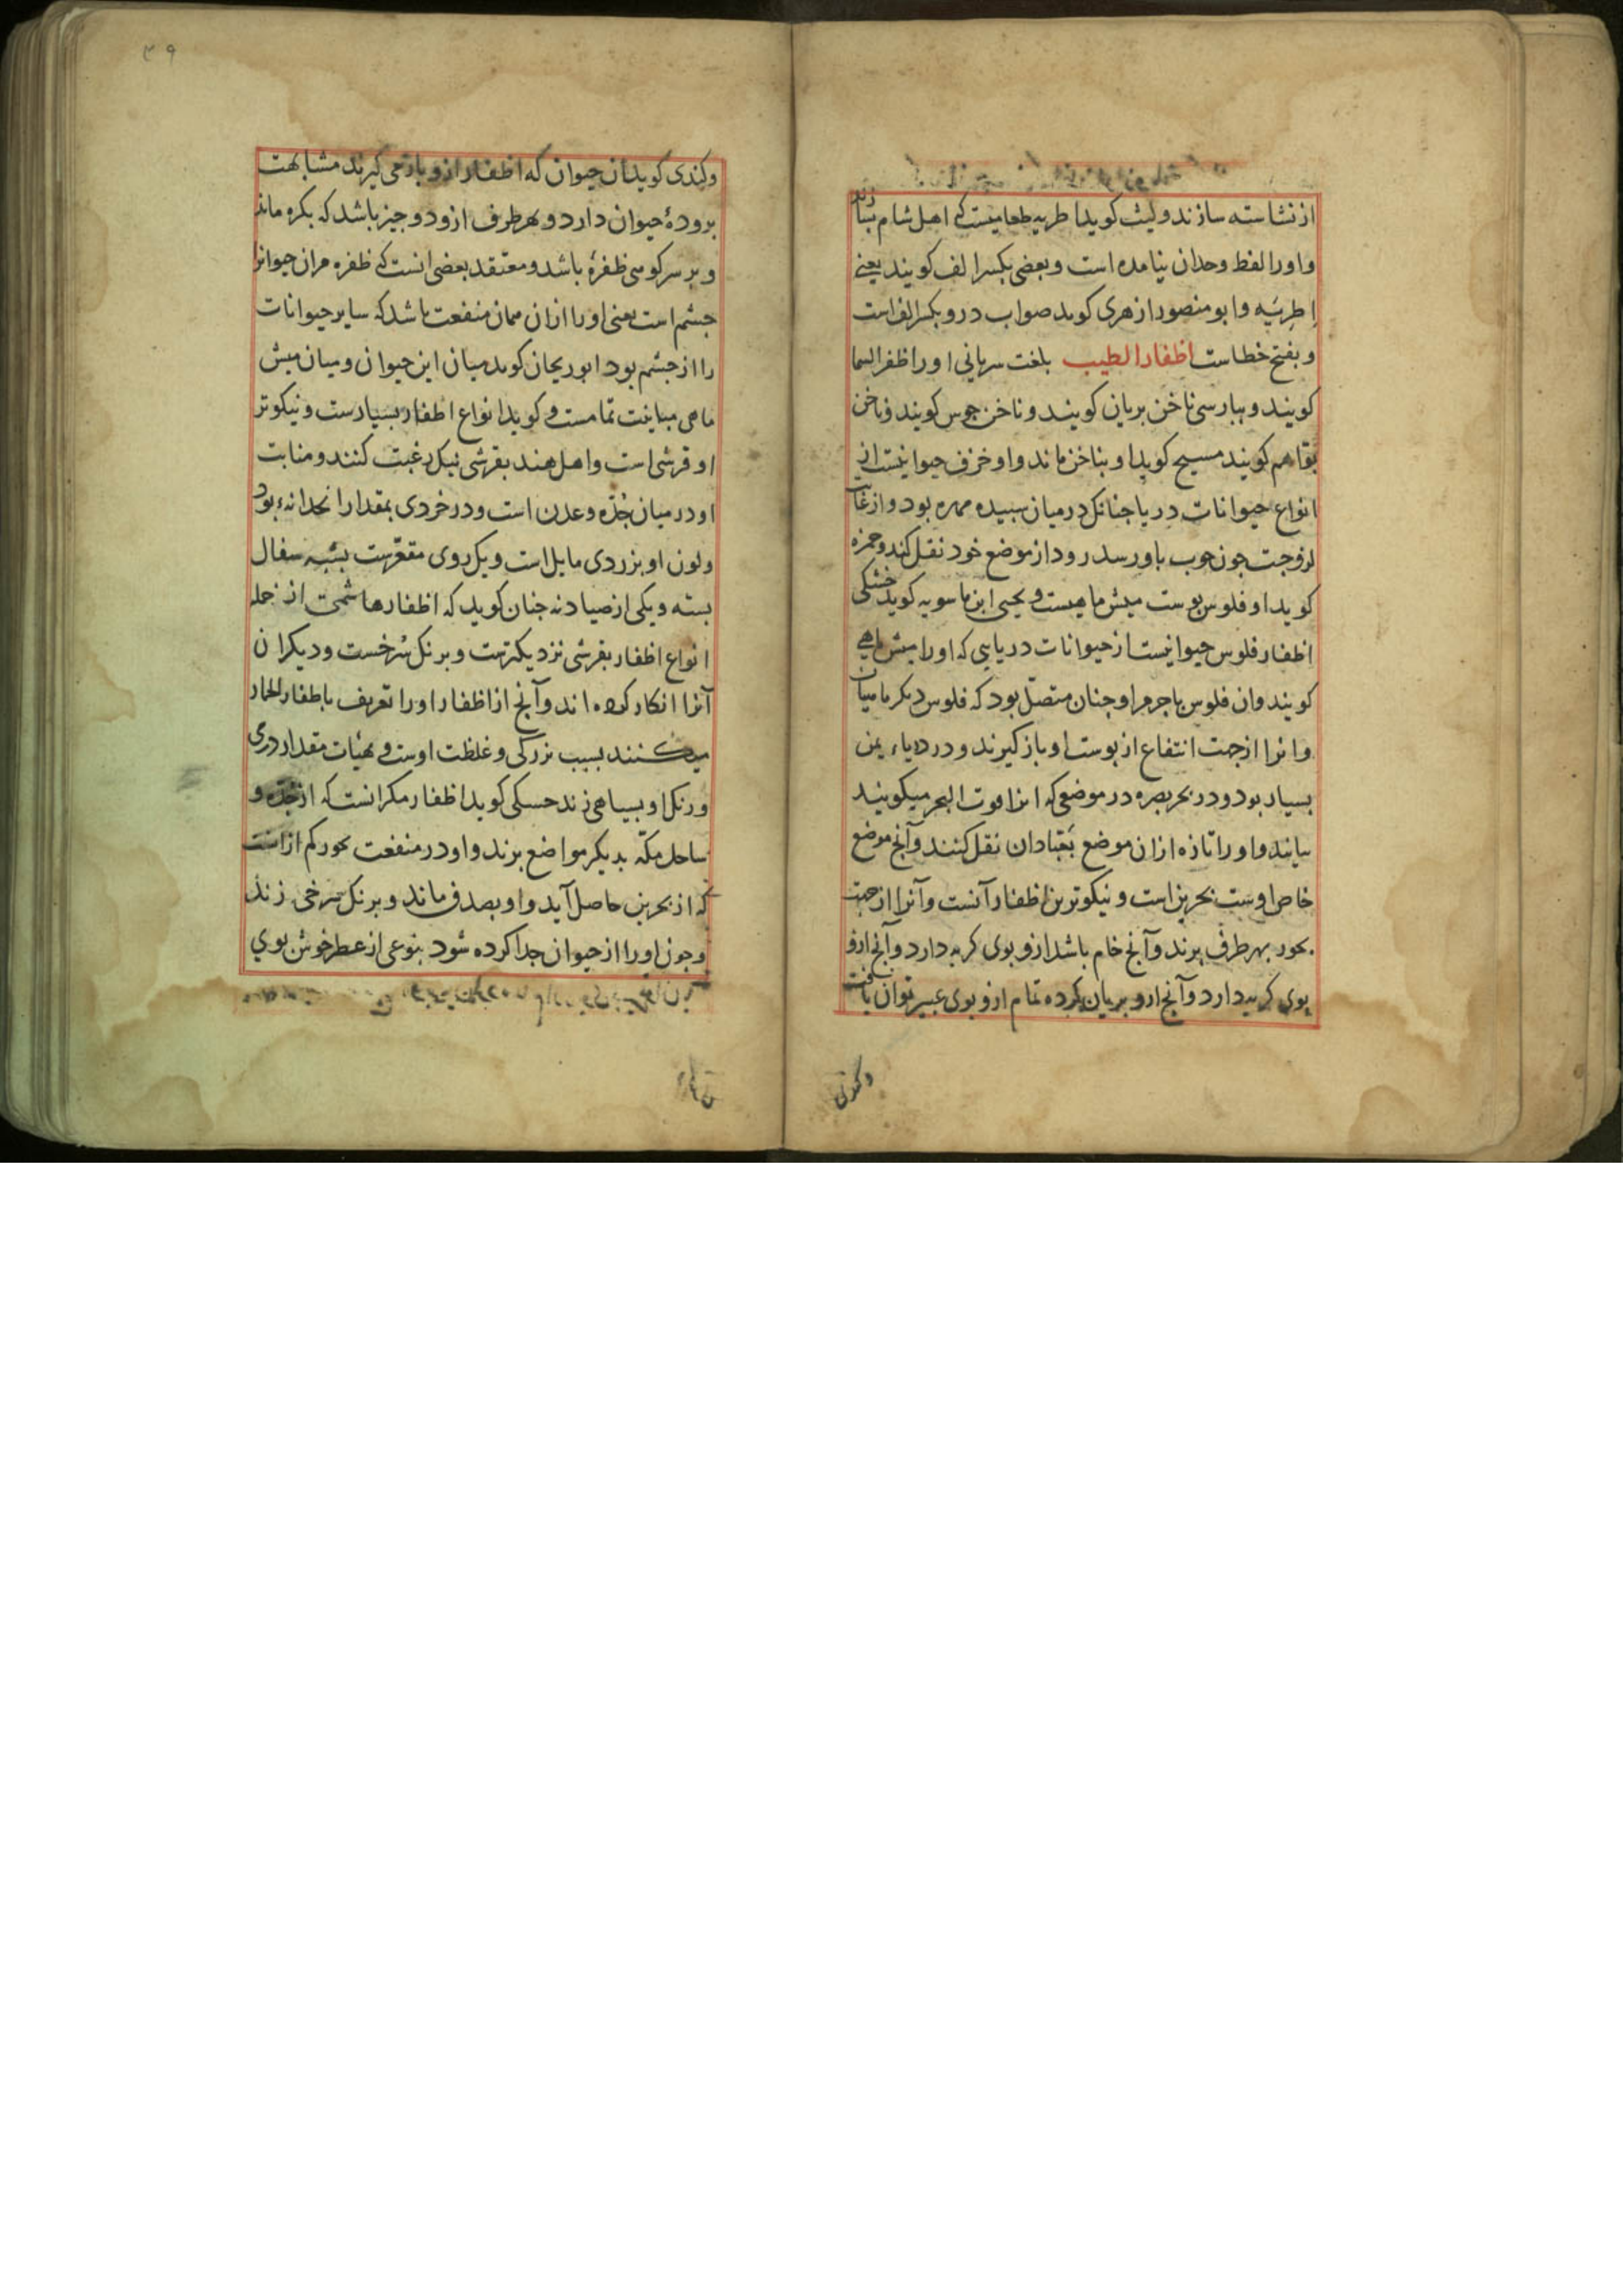 از نشاسته سازند و لیث کوید اطریه طعامیست که اهل شام بسازند
و اورا لفظ وحدان نیامده است و بعضی بکسر الف کویند یعنے
اِطرِیَه و ابو منصور ازهری کوید صواب درو بکسر الف است
و بفتح خطاست اظفار الطیب بلغت سریانی اورا ظفر السما
کویند و بپارسی ناخن بریان کویند و ناخن کویند و ناخن
هم کویند مسیح کوید او بناخن ماند و او خزف حیوانیست از
انواع حیوانات دریا چنانک در میان سپیده مهره بود و از غایت
لزوجت چون چوب باو رسد رود از موضع خود نقل کند و حمزه
کوید او فلوس پوست میش ماهیست و یحیی ابن ماسویه کوید خشکی
اظفار فلوس حیوانیست از حیوانات دریایی که اورا میش ماهی
کویند و ان فلوس با جرم او چنان متصل بود که فلوس دیکر ماهیان
و انرا از جهت انتفاع از پوست او باز کیرند و در دریاء یمن
بسیار بود و در بحر بصره در موضعی که انرا البحر میکویند
بیابند و اورا تازه ازان موضع بعبادان نقل کنند و آنچ موضع
خاص اوست بحرین است و نیکوترین اظفار آنست و آنرا از جهت
بخور بهر طرف برند و آنچ خام باشد ازو بوی کریه دارد و آنچ ازو
بوی کریه دارد و آنچ ازو بریان کرده تمام ازو بوی عبیر توان یافت
وکندی
وکندی کوید ان حیوان که اظفار ازو باز می کیرند مشابهت
برودهٔ حیوان دارد و هر طرف ازو دو چیز باشد که بکره ماند
و بر سر کوسی ظفرهٔ باشد و معتقد بعضی انست که ظفره مران حیوانرا
چشم است یعنی اورا ازان همان منفعت باشد که سایر حیوانات
را از چشم بود ابوریحان کوید میان این حیوان و میان میش
ماهی مباینت تمامست و کوید انواع اظفار بسیارست و نیکوتر
او قرشی است و اهل هند بقرشی نیک رغبت کنند و منابت
او در میان جُدّه و عدن است و در خردی بمقدار انجدانهٔ بود
و لون او بزردی مایل است و یک روی مقعرست بشبه سفال
پسته و یکی از صیادنه چنان کوید که اظفار هاشمی از جمله
انواع اظفار بقرشی نزدیکترست و برنک سرخست و دیکران
آنرا انکار کرده اند و آنچ از اظفار اورا تعریف باظفار الحمار
میکنند بسبب بزرکی و غلظت اوست و بهیات مقدار درمی
و رنک او بسیاهی زند حسکی کوید اظفار مکی انست که از جده و
ساحل مکّه بدیکر مواضع برند و او در منفعت بخور کم ازانست
که از بحرین حاصل آید و او بصدف ماند و برنک سرخی زند
و چون اورا از حیوان جدا کرده شود بنوعی از عطر خوش بوی